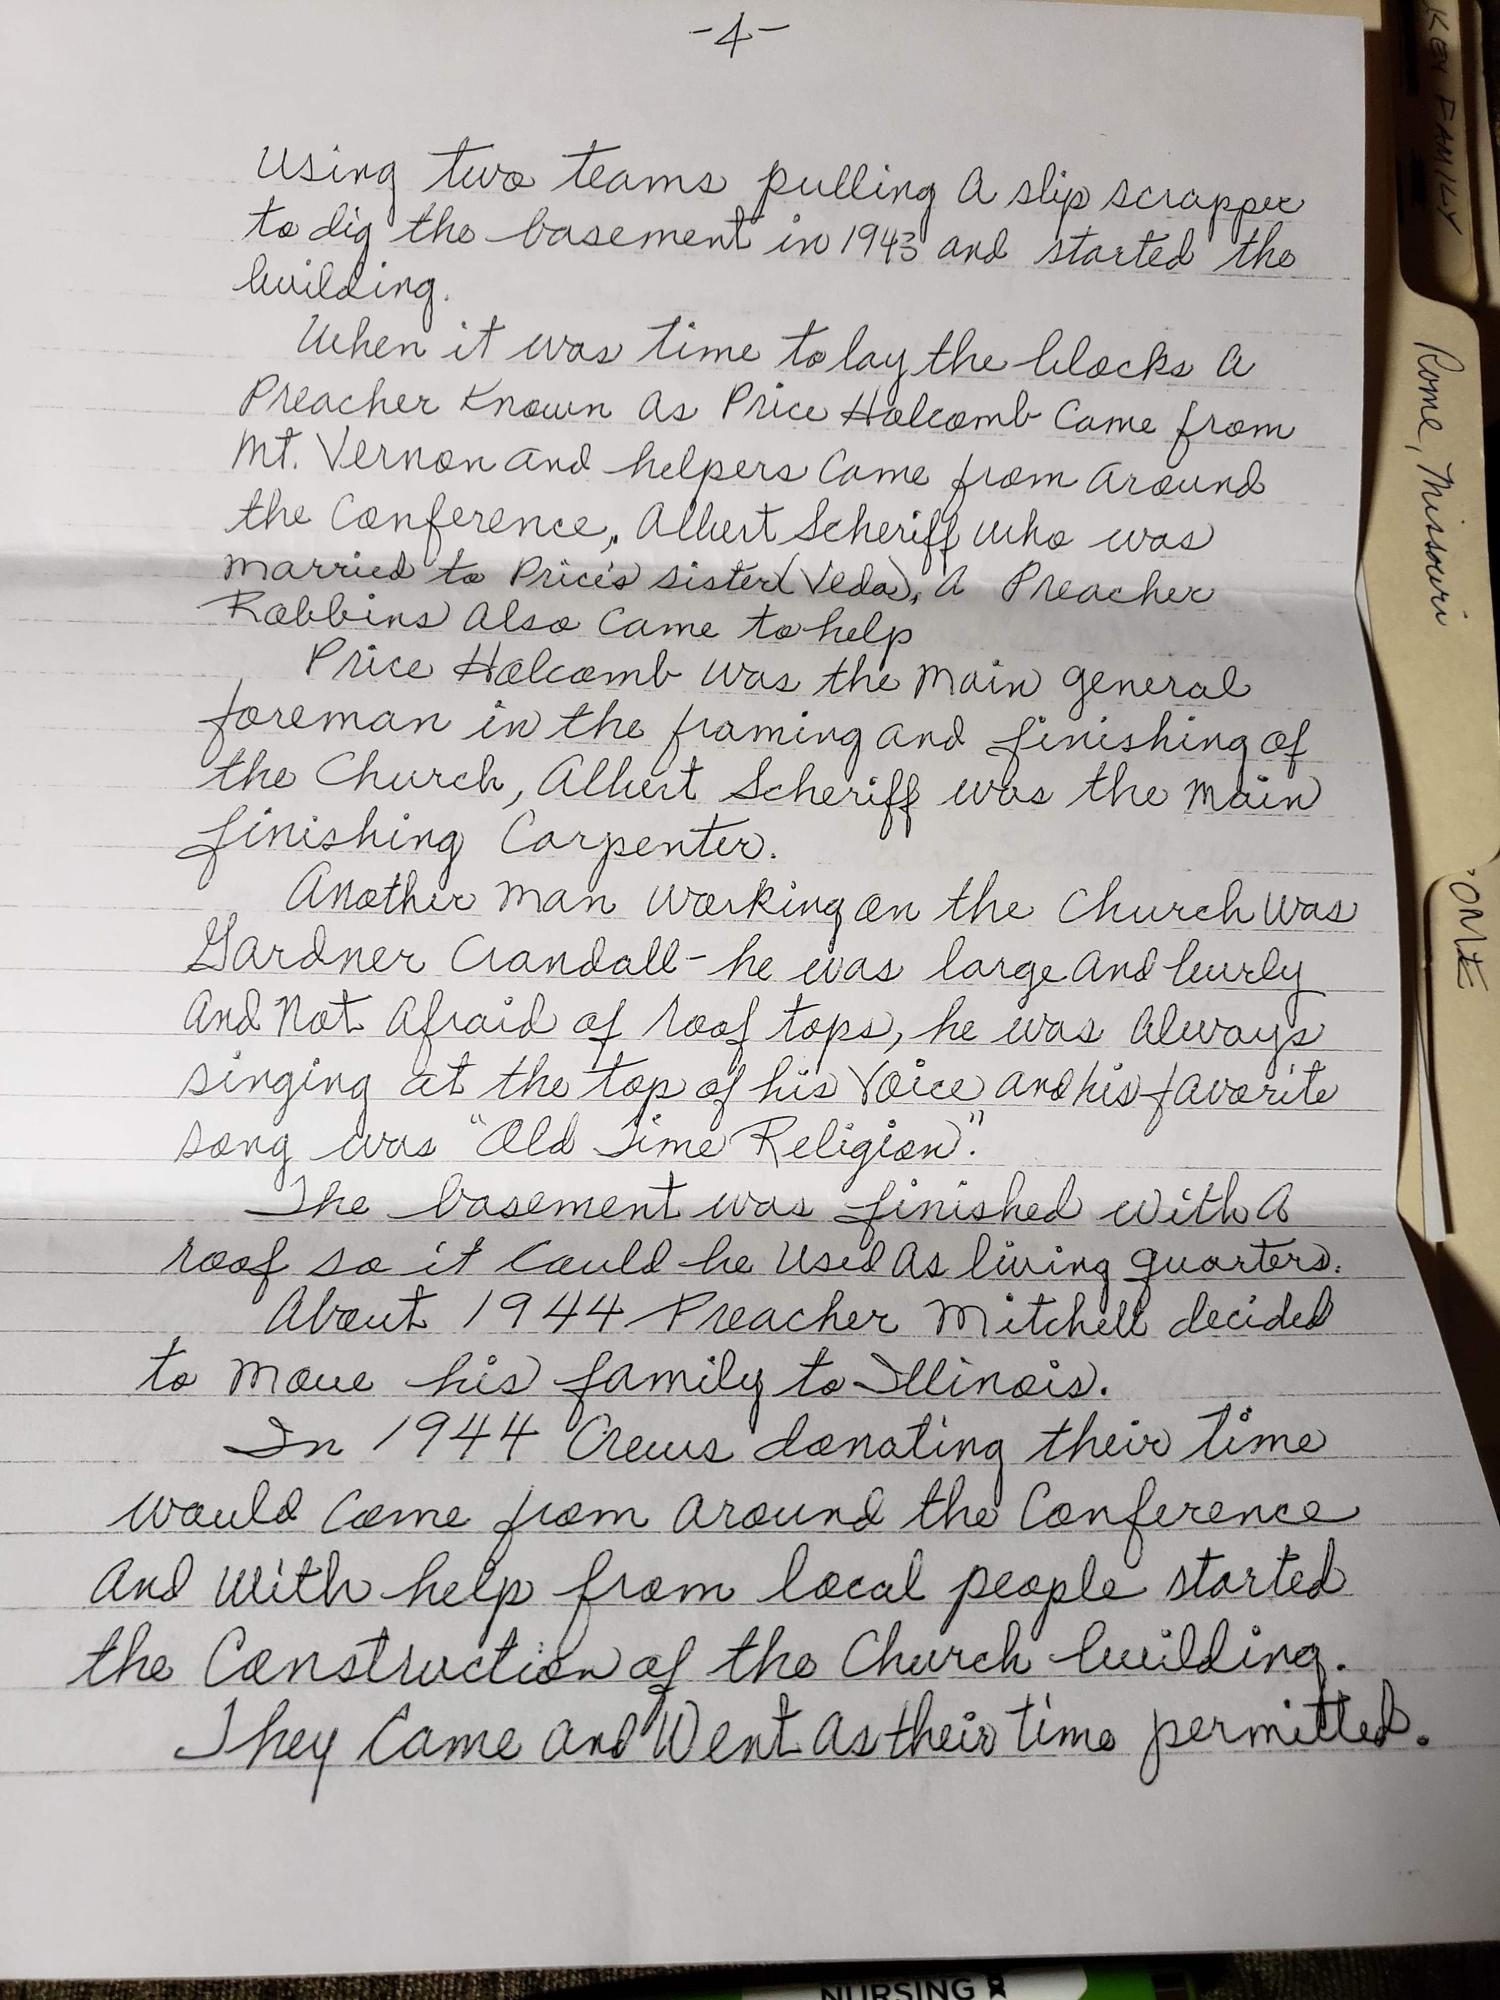 -4-
Using two teams pulling A slip scrapper
to dig the basement in 1943 and started the
building.
When it was time to lay the blocks A
Preacher Known As Price Holcomb Came from
Mt. Vernon and helpers Came from Around
the Conference, Albert Scheriff who was
Married to Price's sister (Veda), A Preacher
Robbins Also Came to help
Price Holcomb was the Main general
foreman in the framing and finishing of
the Church, Albert Scheriff was the Main
finishing Carpenter.
Another Man Working on the Church was
Gardner Crandall - he was large And burly
And Not Afraid of roof tops, he was Always
singing at the top of his Voice and his favorite
song was "Old Time Religion".
The basement was finished with A
roof so it Could be Used As living quarters.
About 1944 Preacher Mitchell decided
to Move his family to Illinois.
In 1944 Crews donating their time
would Come from Around the Conference
And With help from local people started
the Construction of the Church building.
They Came And Went As their time permitted.
KEY FAMILY
Rome, Missouri
OME
NURSING